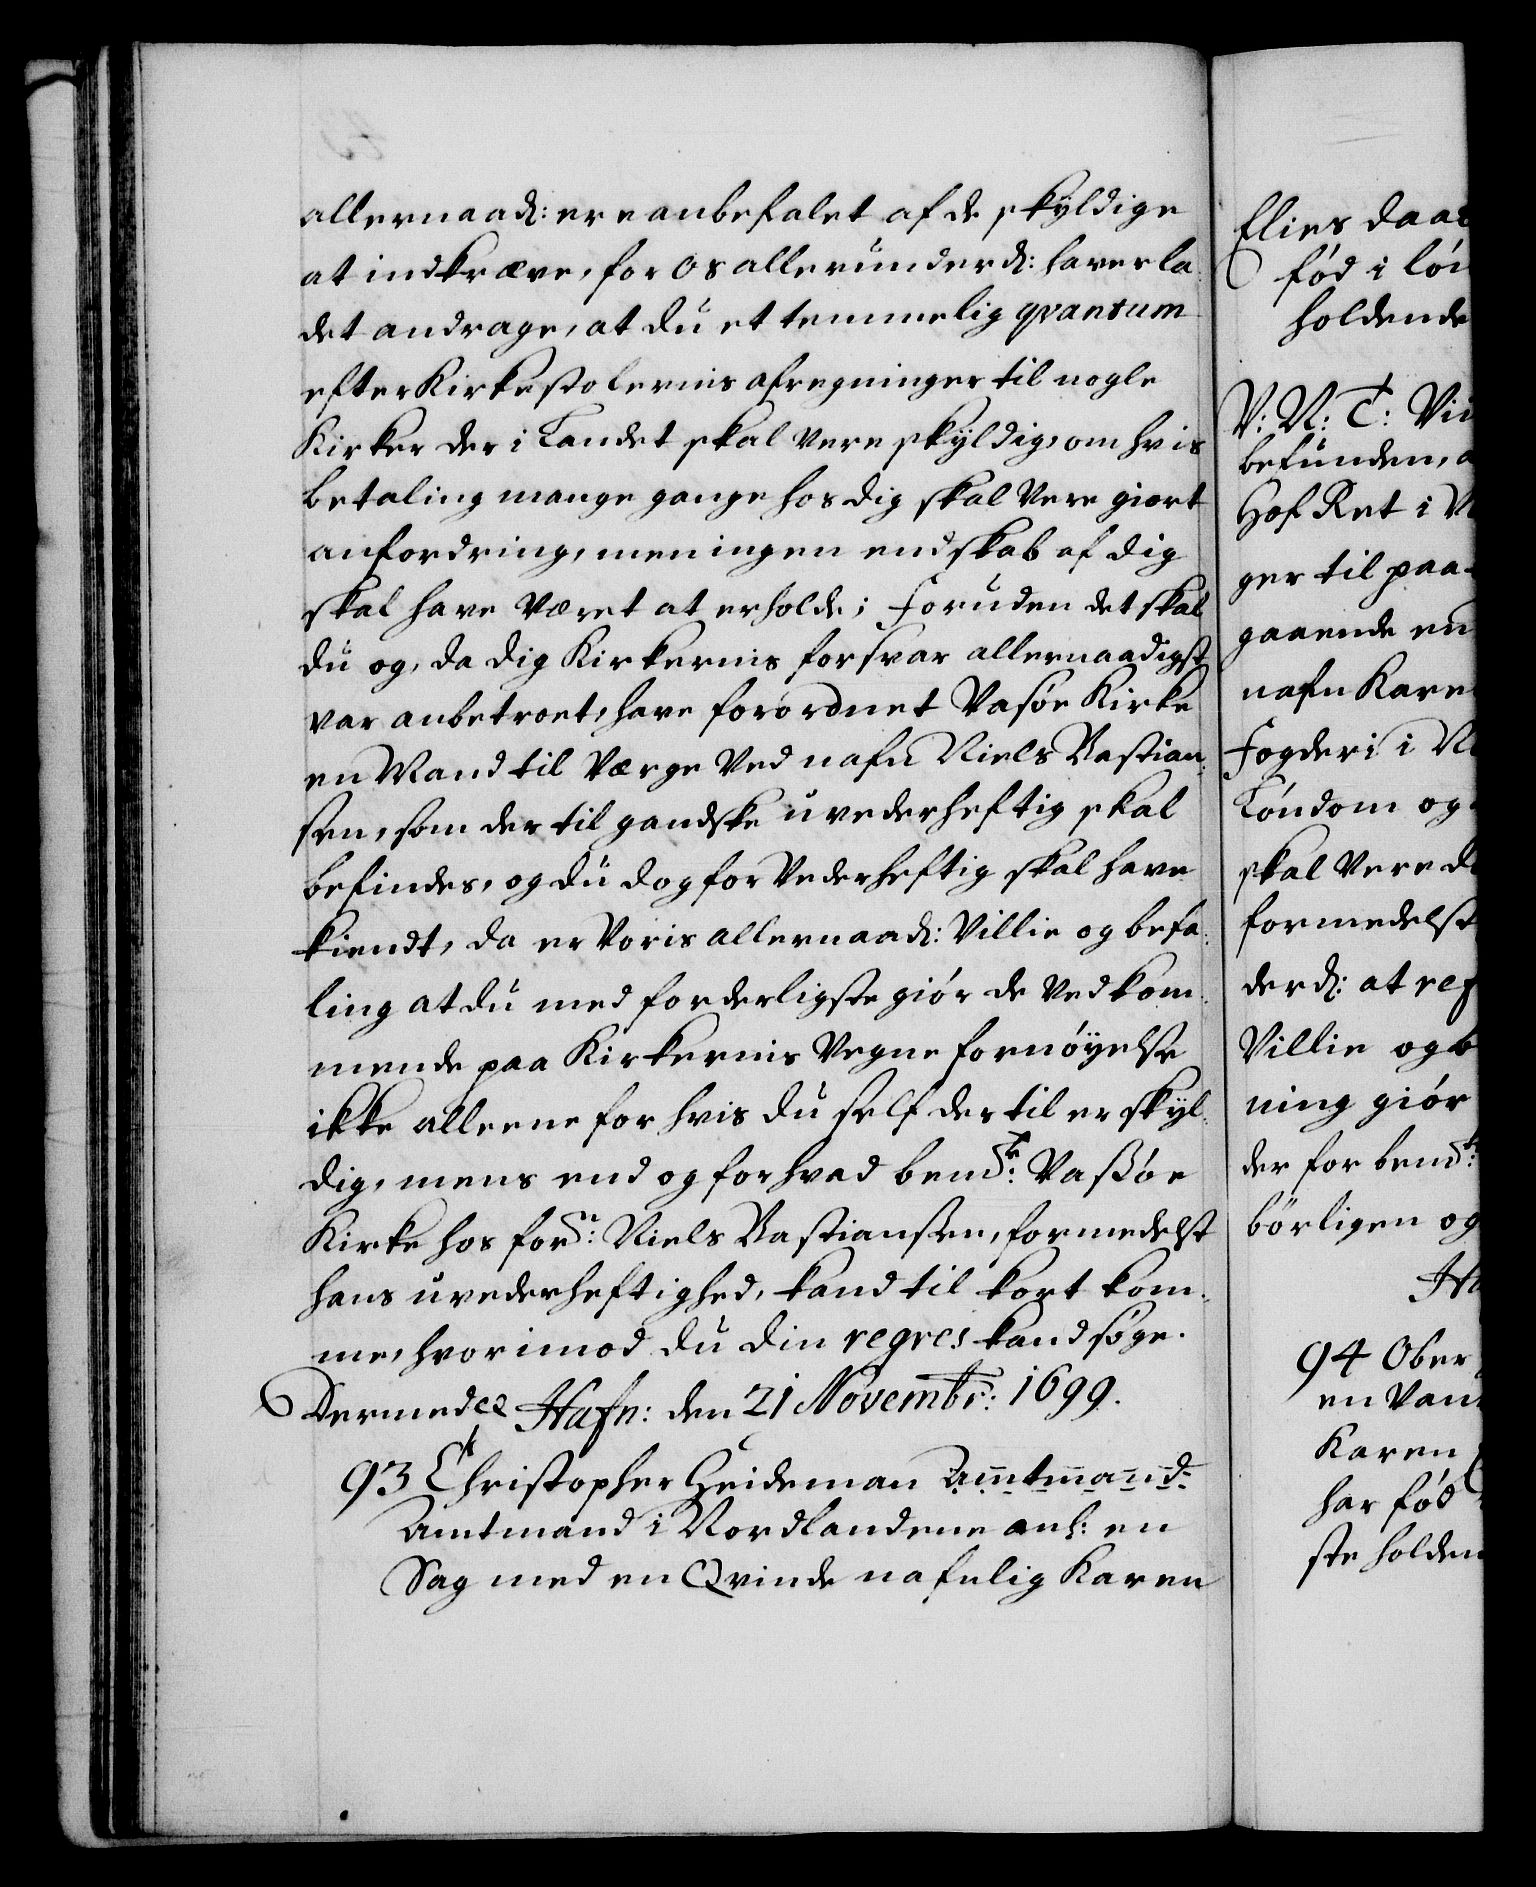 allernaad: ere anbefalet af de skyldige
at indkræve, for os allerunderd: haver la
det andrage, at du et temmelig qvantum
efter Kirkestolernis afregninger til nogle
Kirker der i Landet skal vere skyldig, om hvis
betaling mange gange hos dig skal vere giort
anfordring, men ingen endskab af dig
skal have været at erholde; foruden det skal
du og, da dig Kirkernis forsvar allernaadigst
var anbetroet, have forordnet Vasøe Kirke
en Mand til Værge ved nafn Niels Bastian
sen, som dertil gandske uvederheftig skal
befindes, og du dog for vederheftig skal have
kiendt, da er voris allernaad: Villie og befa
ling at du med forderligste giør de vedkom
mende paa Kirkernis Vegne fornøyelse
ikke alleene for hvis du self der til er skyl
dig, mens end og for hvad bemte: Vassøe
Kirke hos forn: Niels Bastiansen, formedelst
hans uvederheftighed, kand til kort kom
me, hvorimod du din regres kand søge.
Dermed etc Hafn: den 21 Novembr: 1699.
93 Christopher Heideman Amtmand
Amtmand i Nordlandene anl: en
Sag med en Qvinde nafnlig Karen
Elies daa
fød i løn
holdende
V: N: T: Vii
befunden, a
Hof Ret i N
ger til paa
gaaende en
nafn Karen
Fogderi i N
Løndom og
skal vere d
formedelst
derd: at ref
Villie og b
ning giør
der for bemte:
børligen og
Ha
94 Ober
en Van
Karen
har fød
ste holden